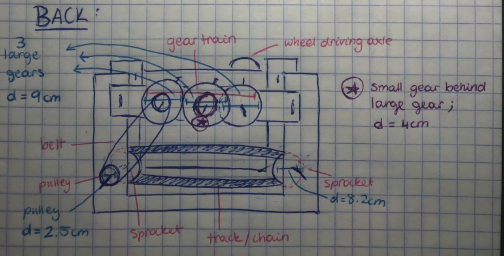 BACK:
3
large
gears
d = 9cm
gear train
wheel driving axle
small gear behind
large gear;
d = 4cm
belt
pulley
pulley
d = 2.5cm
sprocket
track/chain
sprocket
d = 8.2cm